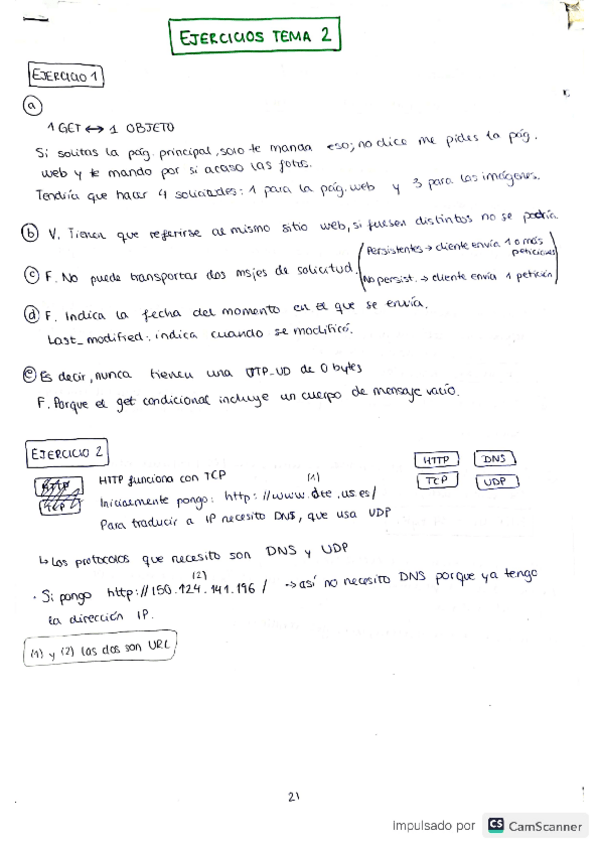 EJERCICIOS TEMA 2
EJERCICIO 1
a
1 GET ↔ 1 OBJETO
Si solitas la pág principal, solo te manda eso; no dice me pides la pág.
web y te mando por si acaso las fotos.
Tendría que hacer 4 solicitudes: 1 para la pág. web y 3 para las imágenes.
b V. Tienen que referirse al mismo sitio web, si fuesen distintos no se podría
c F. No puede transportar dos msjes de solicitud.
Persistentes → cliente envía 1 o más
peticiones
No persist. → cliente envía 1 petición
d F. Indica la fecha del momento en el que se envía.
Last_modified: indica cuando se modificó.
e Es decir, nunca tienen una UD de 0 bytes
F. Porque el get condicional incluye un cuerpo de mensaje vacío.
EJERCICIO 2
HTTP DNS
TCP UDP
HTTP
TCP
HTTP funciona con TCP
(1)
Inicialmente pongo: http://www.dte.us.es/
Para traducir a IP necesito DNS, que usa UDP
↳ Los protocolos que necesito son DNS y UDP
(2)
· Si pongo http://150.124.141.196/ → así no necesito DNS porque ya tengo
la dirección IP.
(1) y (2) las dos son URL
21
Impulsado por CS CamScanner